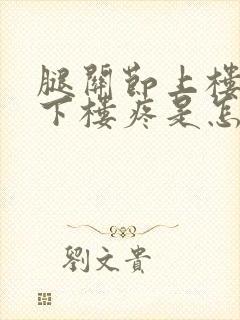 腿關節上樓
下樓疼是怎
劉文貴